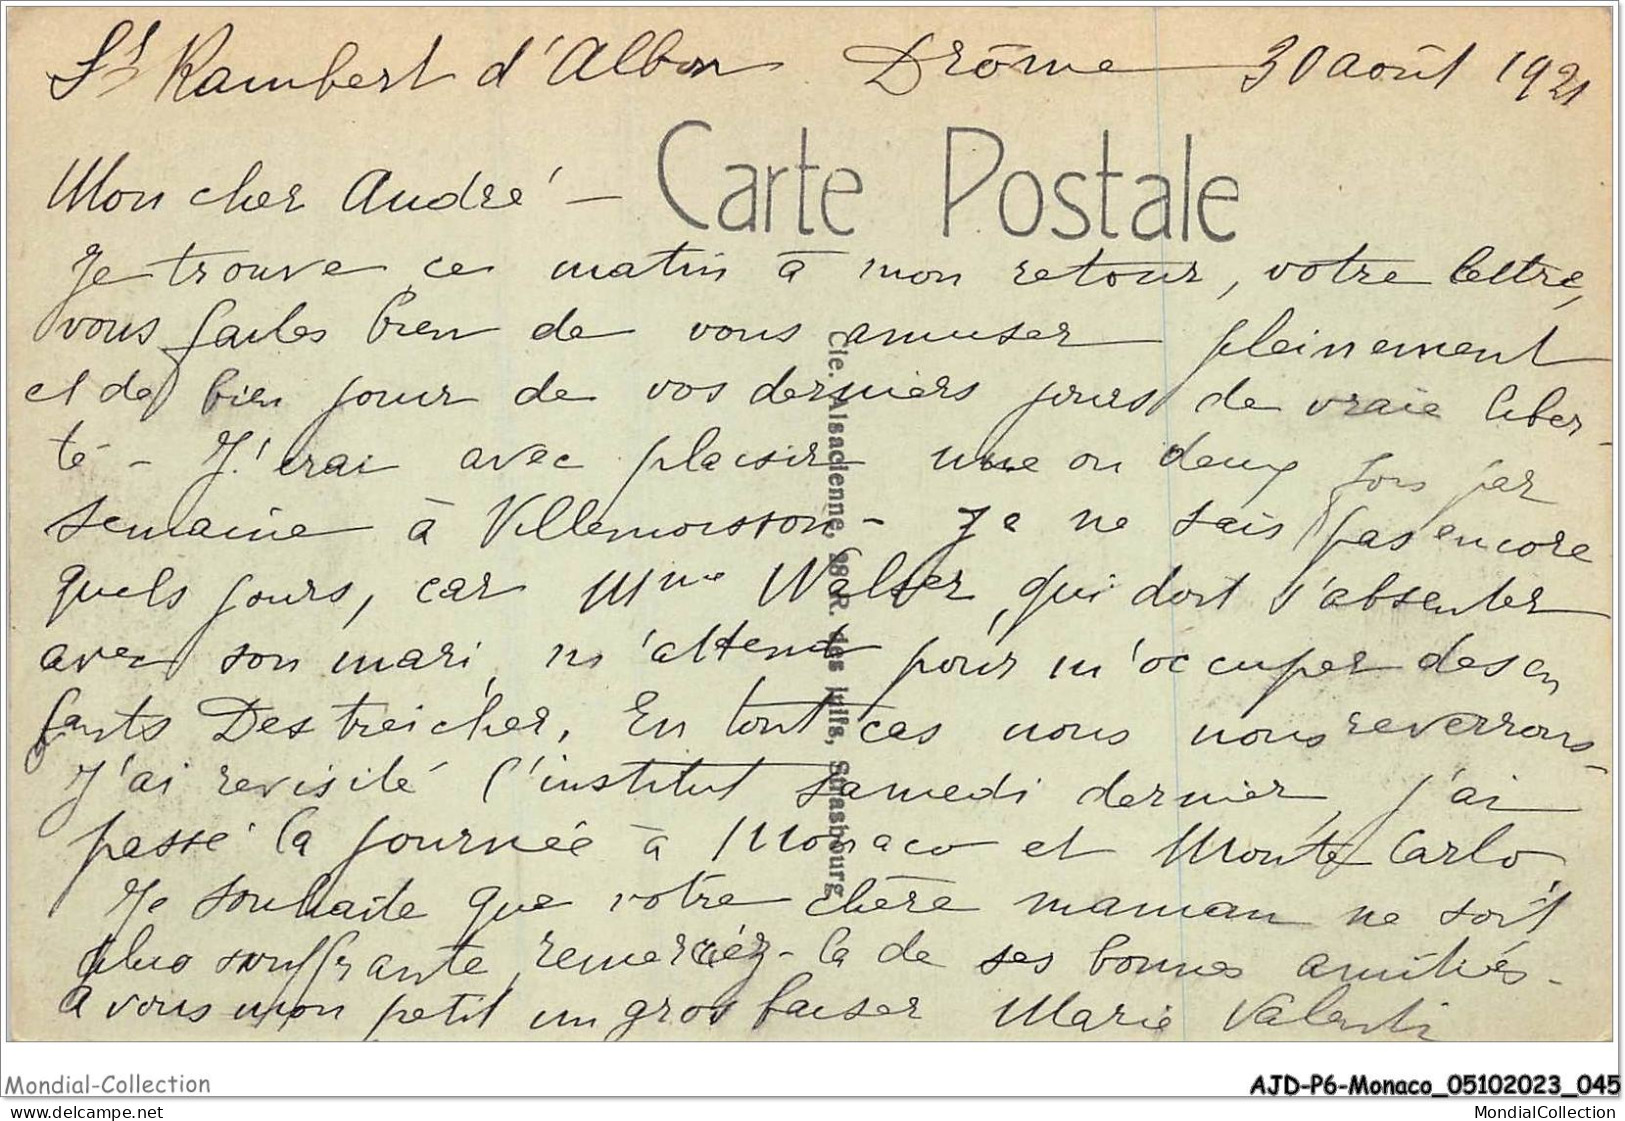 St Rambert d'Albon Drôme 30 août 1921
Carte Postale
Mon cher André -
Je trouve ce matin à mon retour, votre lettre,
vous faites bien de vous amuser pleinement
et de bien jouir de vos derniers jours de vraie liber-
té - J'irai avec plaisir une ou deux fois par
semaine à Villemoisson - Je ne sais pas encore
quels jours, car Mme Walser, qui doit s'absenter
avec son mari, m'attend pour m'occuper des en
fants Destreicher. En tout cas nous nous reverrons -
J'ai revisité l'institut samedi dernier, j'ai
passé la journée à Monaco et Monte Carlo,
Je souhaite que votre chère maman ne soit
plus souffrante, remerciez-la de ses bonnes amitiés -
à vous mon petit un gros baiser Marie Valenti
Cie. Alsacienne, 28 R. des Juifs, Strasbourg
Mondial-Collection
AJD-P6-Monaco_05102023_045
MondialCollection